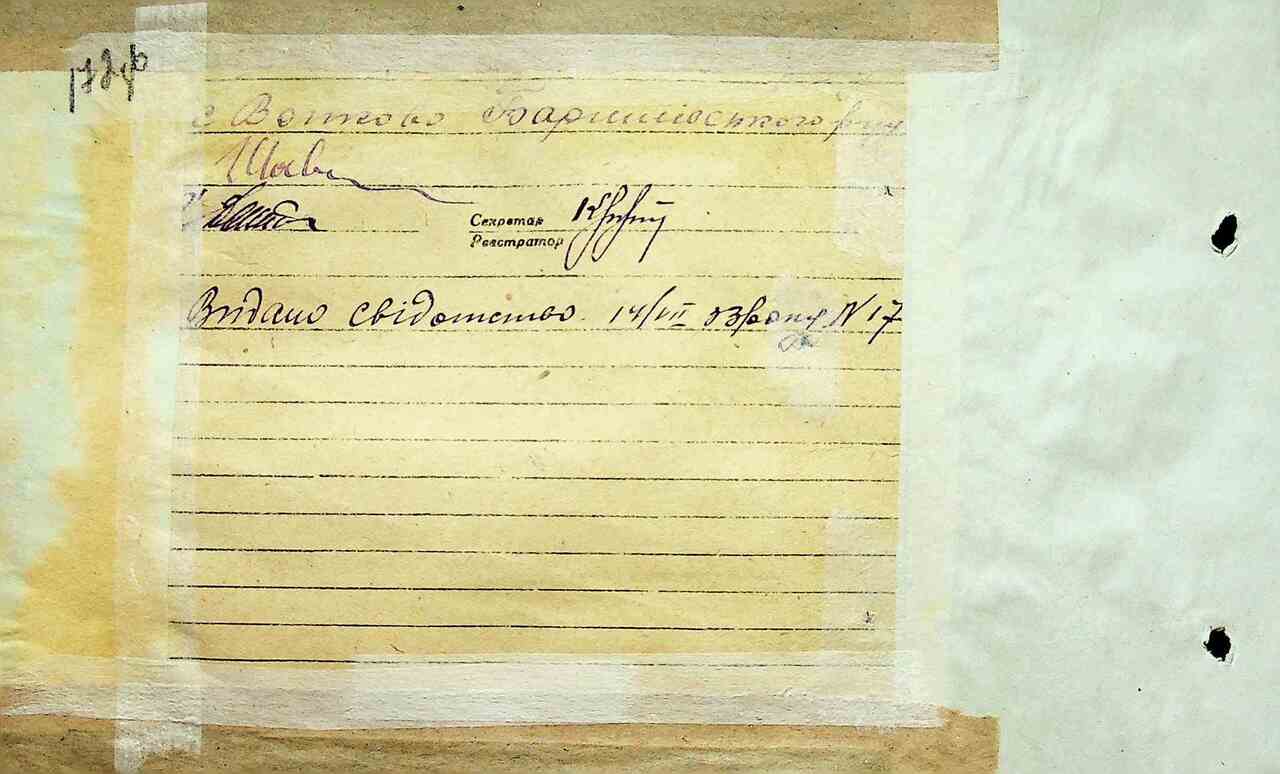 172
с Вопково Баришівського
Секретар
Реєстратор
Видано свідотство 14/VII 53 року N 17